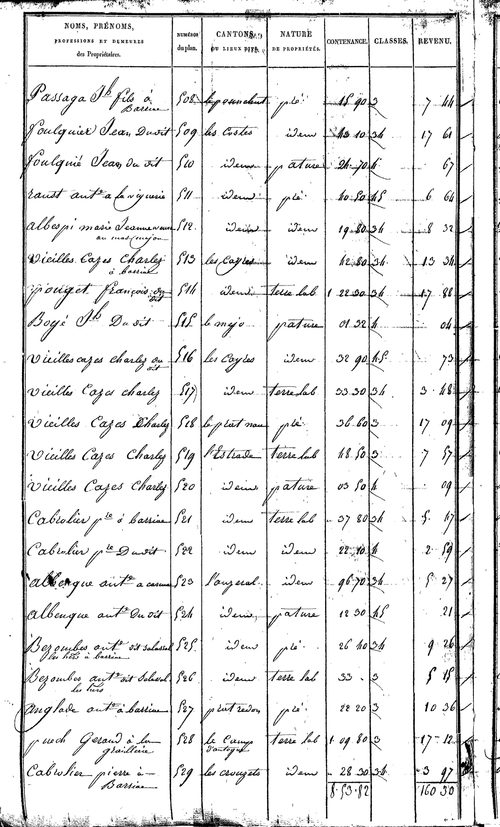 NOMS, PRÉNOMS, PROFESSIONS ET DEMEURES des Propriétaires. NUMÉROS du plan. CANTONS OU LIEUX DITS. NATURE DE PROPRIÉTÉS. CONTENANCE. CLASSES. REVENU.
Passaga Jh fils à Barrine 508 le pounchut pré 15 90 3 7 44
foulquier Jean Du dit 509 les Costes idem 43 10 34 17 61
foulquié Jean du dit 510 idem pature 24 70 4 67
raust ante a la viguerie 511 idem pré 40 50 45 6 64
albespi marie Jeanne au mas mejou 512 idem idem 19 80 34 8 32
Vieilles Cazes Charles à barrine 513 les Cayres idem 42 80 34 13 34
pouget françois du dit 514 idem terre lab 1 22 30 34 17 88
Boyé Jh Du dit 515 le mejo pature 01 32 4 04
Vieilles cazes charles du dit 516 les Cayres idem 32 90 45 73
Vieilles Cazes charles 517 idem terre lab 33 30 34 3 48
Vieilles Cazes Charles 518 le prat nau pré 36 60 3 17 09
Vieilles Cazes Charles 519 l'Estrade terre lab 48 50 3 7 57
Vieilles Cazes Charles 520 idem pature 03 50 4 09
Cabrolier pre à barrine 521 idem terre lab 37 80 34 5 47
Cabrolier pre Du dit 522 idem idem 22 10 4 2 59
albenque ante a 523 idem 96 70 34 5 27
albenque ante Du dit 524 idem pature 12 30 45 21
Bezombes ante dit les hers à barrine 525 idem pré 26 40 34 9 26
Bezombes ante dit 526 idem terre lab 33 3 5 15
anglade ante à barrine 527 prat redon pré 22 20 3 10 36
puech Geraud à la graillerie 528 le Camp terre lab 1 09 80 3 17 12
Cabrolier pierre à Barrine 529 les crouzets idem 28 30 34 3 97
8 53 82 160 30